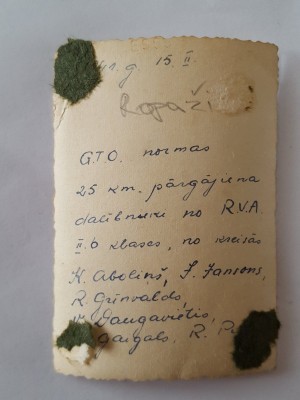 g. 15. II.
Ropaži
G.T.O. normas
25 km. pārgājiena
dalībnieki no R.V.A.
II. b klases, no kreisās
K. Aboliņš, J. Jansons,
R. Grīnvalds,
V. Daugavietis,
Gaigals, R.